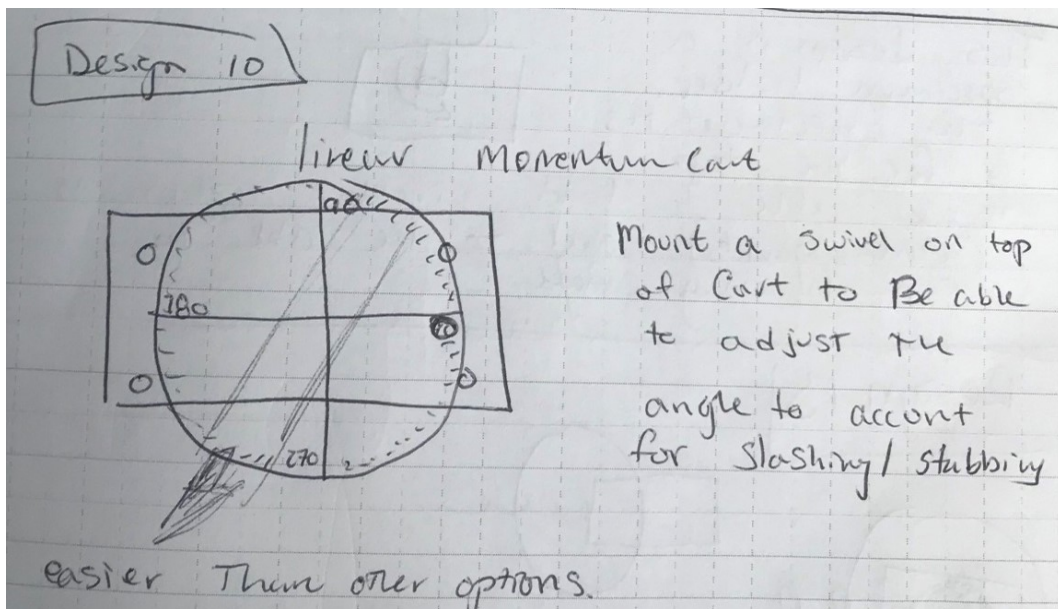 Design 10
linear Momentum Cart
90
Mount a swivel on top
of Cart to Be able
180
to adjust the
angle to accont
for Slashing/ stabbing
270
easier Then other options.